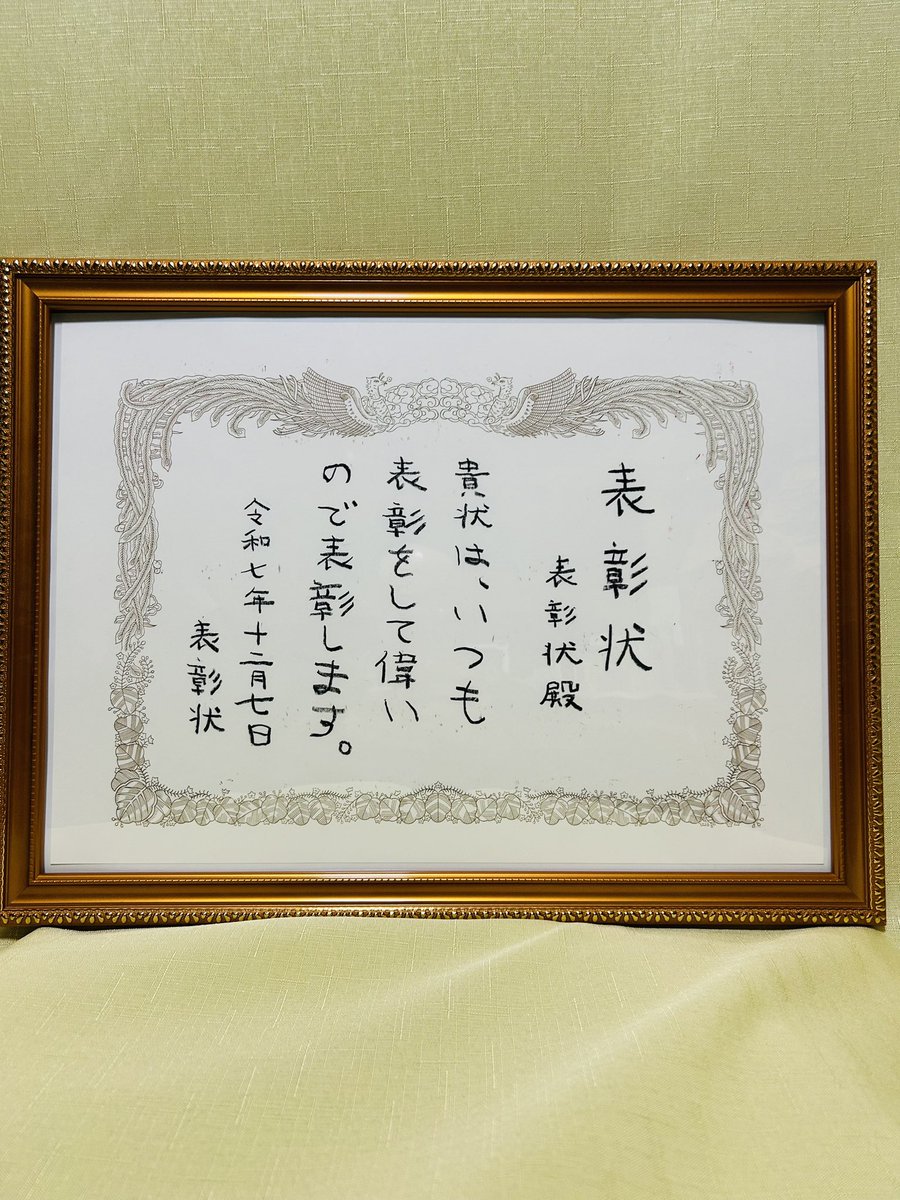 表彰状
表彰状殿
貴状は、いつも
表彰をして偉い
ので表彰します。
令和七年十二月七日
表彰状